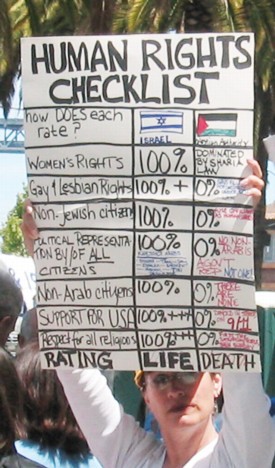 HUMAN RIGHTS
CHECKLIST
how DOES each
rate?
ISRAEL
WOMEN'S RIGHTS
100%
DOMINATED
BY SHARIA
LAW
Gay & Lesbian Rights
100% +
0%
Non-Jewish citizens
100%
0%
POLITICAL REPRESENTA
TION BY/OF ALL
CITIZENS
100%
0%
NO NON-
ARABS
NOT ONE!
Non-Arab citizens
100%
0%
THERE
ARE
NONE
SUPPORT FOR USA
100%+++
0%
9/11
Respect for all religions
100%+++
0%
RATING
LIFE
DEATH